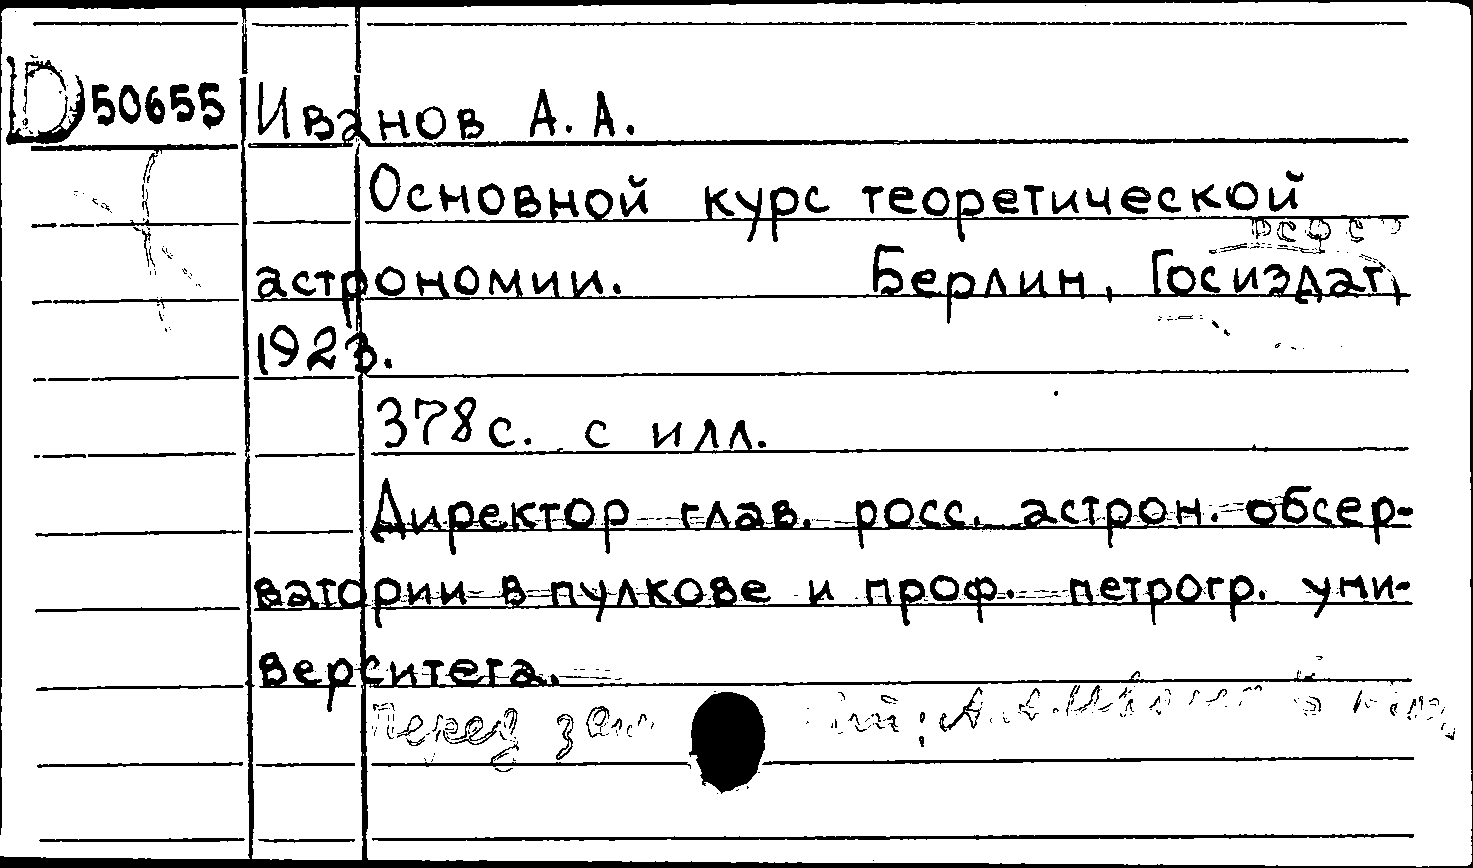 D 50655 Иванов А. А.
Основной курс теоретической
РСФСР
астрономии. Берлин, Госиздат,
1923.
378 с. с илл.
Директор глав. росс. астрон. обсер-
ватории в пулкове и проф. петрогр. уни-
верситета.
Перед : А. А. Иванов